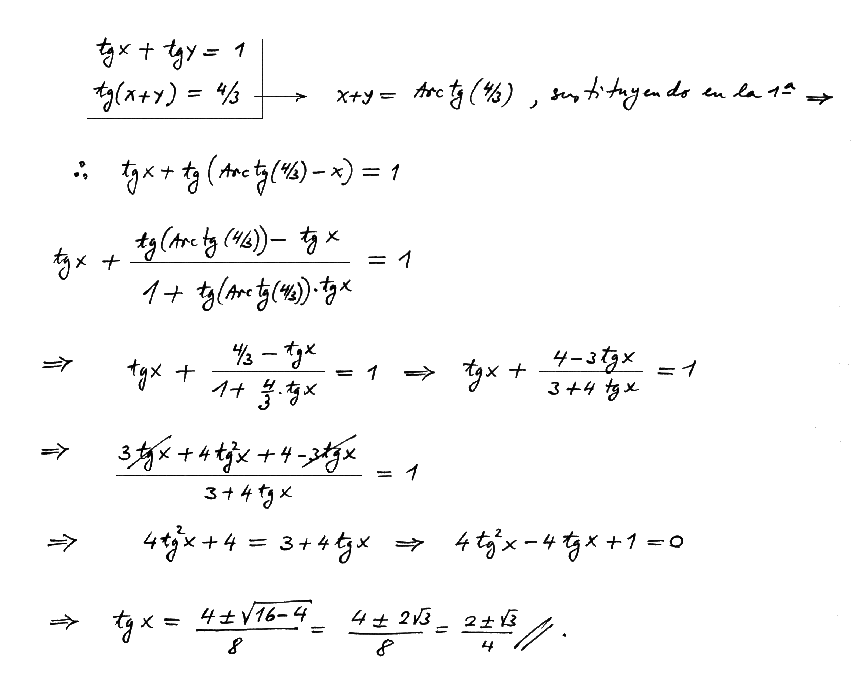 tgx + tgy = 1
tg(x+y) = 4/3 → x+y = Arc tg (4/3), sustituyendo en la 1ª ⇒
∴ tgx + tg (Arc tg(4/3) − x) = 1
tgx + (tg(Arc tg (4/3)) − tg x) / (1 + tg(Arc tg(4/3))·tgx) = 1
⇒ tgx + (4/3 − tgx) / (1 + 4/3 · tgx) = 1 ⇒ tgx + (4−3tgx) / (3+4 tgx) = 1
⇒ (3tgx + 4tg²x + 4 − 3tgx) / (3+4tgx) = 1
⇒ 4tg²x + 4 = 3+4tgx ⇒ 4tg²x − 4tgx + 1 = 0
⇒ tg x = (4 ± √16−4) / 8 = (4 ± 2√3) / 8 = (2 ± √3) / 4 //.